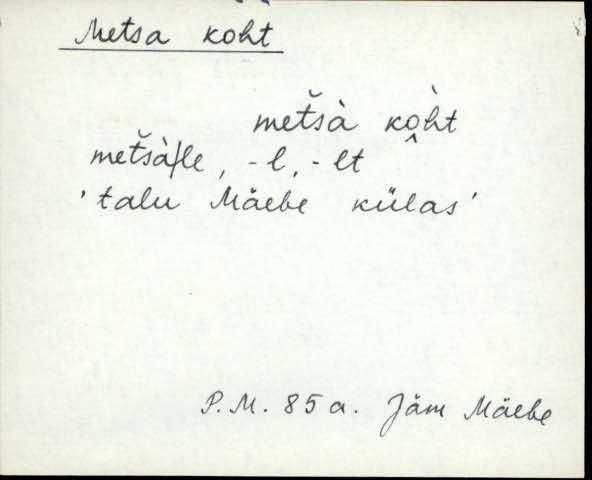 Metsa koht
metšà kòht
metšà/le, -l, -lt
'talu Mäebe külas'
P.M. 85 a. Jäm Mäebe